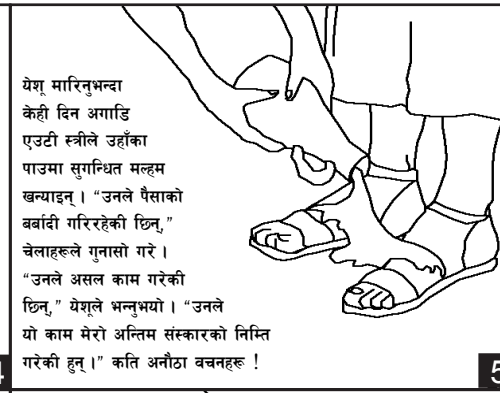 येशू मारिनुभन्दा
केही दिन अगाडि
एउटी स्त्रीले उहाँका
पाउमा सुगन्धित मल्हम
खन्याइन् । “उनले पैसाको
बर्बादी गरिरहेकी छिन्,”
चेलाहरूले गुनासो गरे ।
“उनले असल काम गरेकी
छिन्,” येशूले भन्नुभयो । “उनले
यो काम मेरो अन्तिम संस्कारको निम्ति
गरेकी हुन् ।” कति अनौठा वचनहरू !
4
5